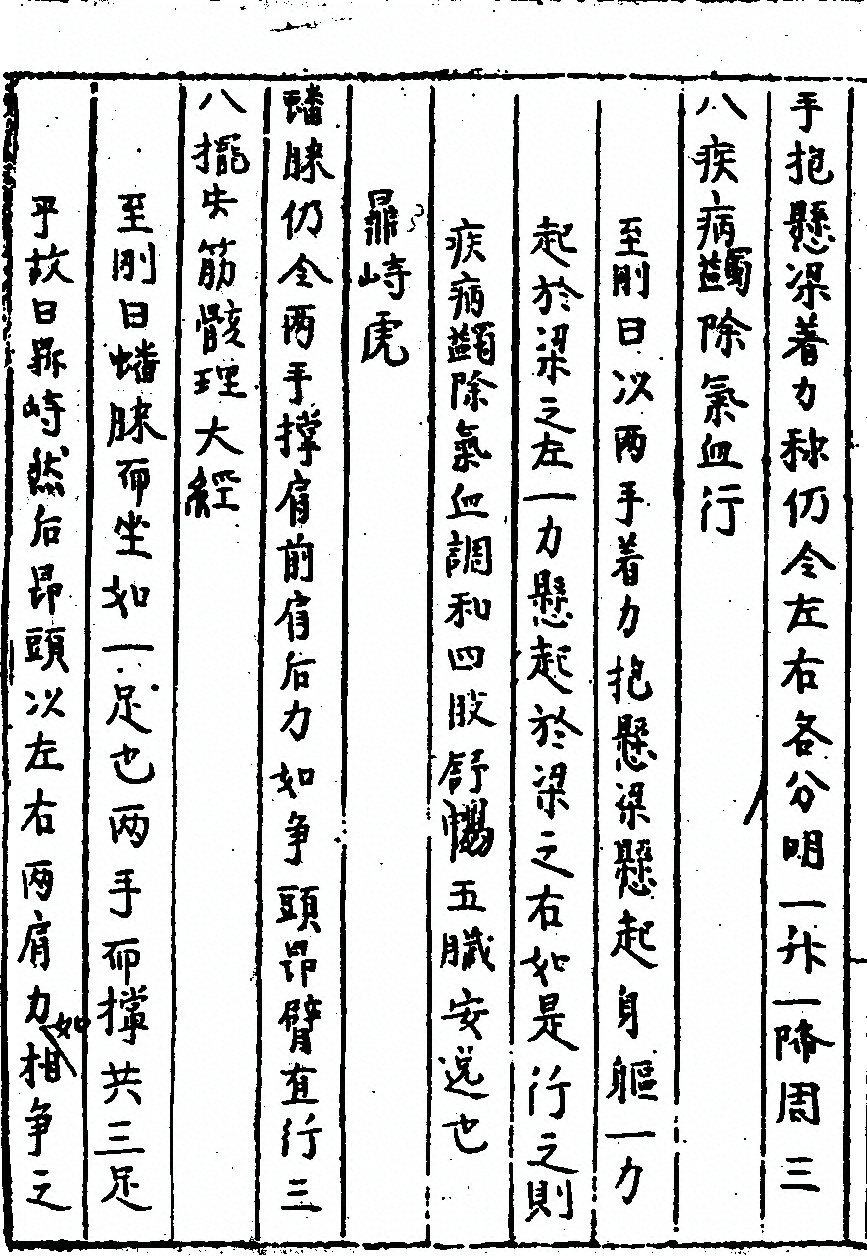 手抱懸梁着力秧仍令左右各分明一升一降周三
八疾病蠲除氣血行
至剛日以两手着力抱懸梁懸起身軀一力
起於梁之左一力懸起於梁之右如是行之則
疾病蠲除氣血調和四肢舒暢五臟安逸也
鼎峙虎
蟠膝仍令两手撑肩前肩后力如争頭昂臂直行三
八擺失筋骸理大經
至剛日蟠膝而坐如一足也两手而撑共三足
乎故曰鼎峙然后昂頭以左右两肩力如相争之